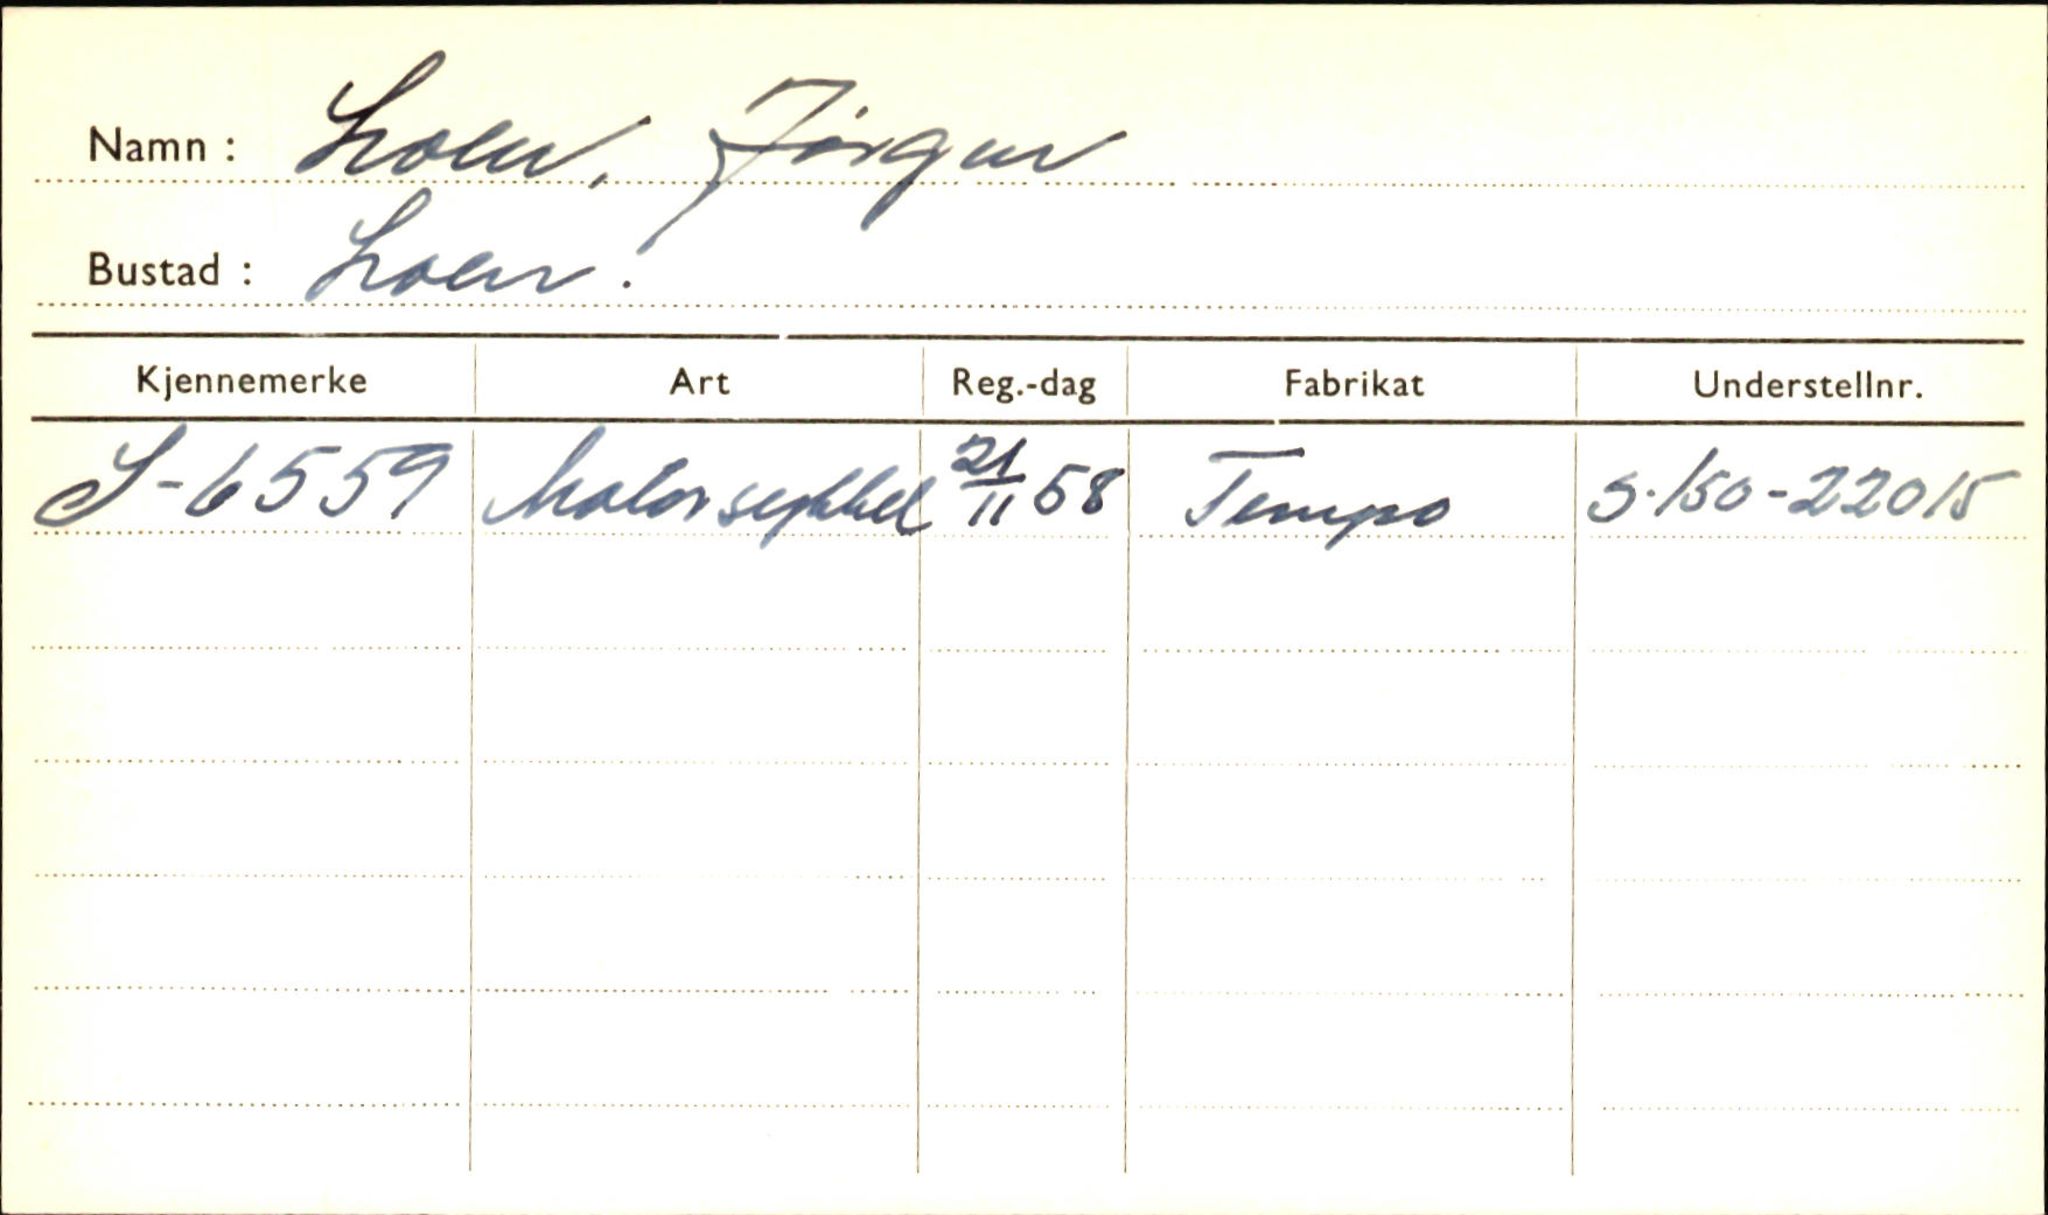 Namn : Loen, Jörgen
Bustad : Loen.
Kjennemerke Art Reg.-dag Fabrikat Understellnr.
S-6559 Motorsykkel 21/11 58 Tempo S.150-22015